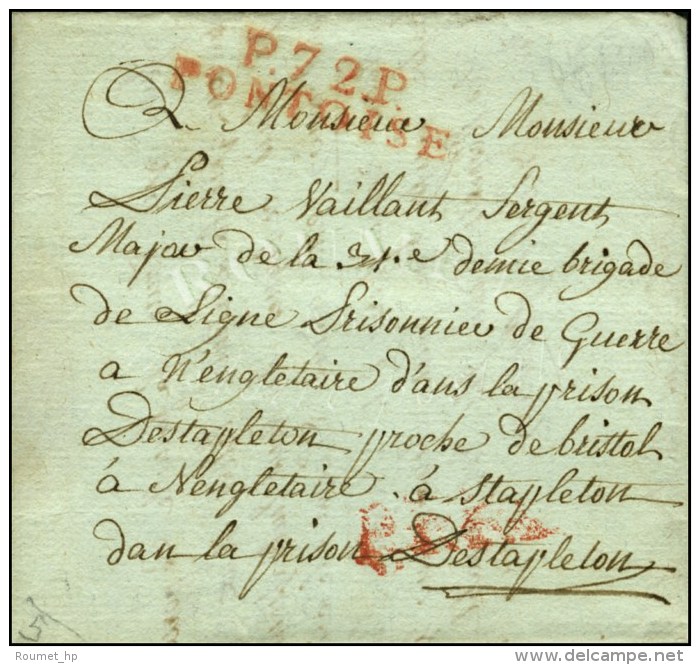 P.72.P.
PONTOISE
A Monsieur Monsieur
Pierre Vaillant Sergent
Major de la 31.e demie brigade
de Ligne Prisonnier de Guerre
a N'engletaire d'ans la prison
Destapleton proche de bristol
à Nengletaire. à Stapleton
dan la prison Destapleton
Roumet_hp
delcampe.net